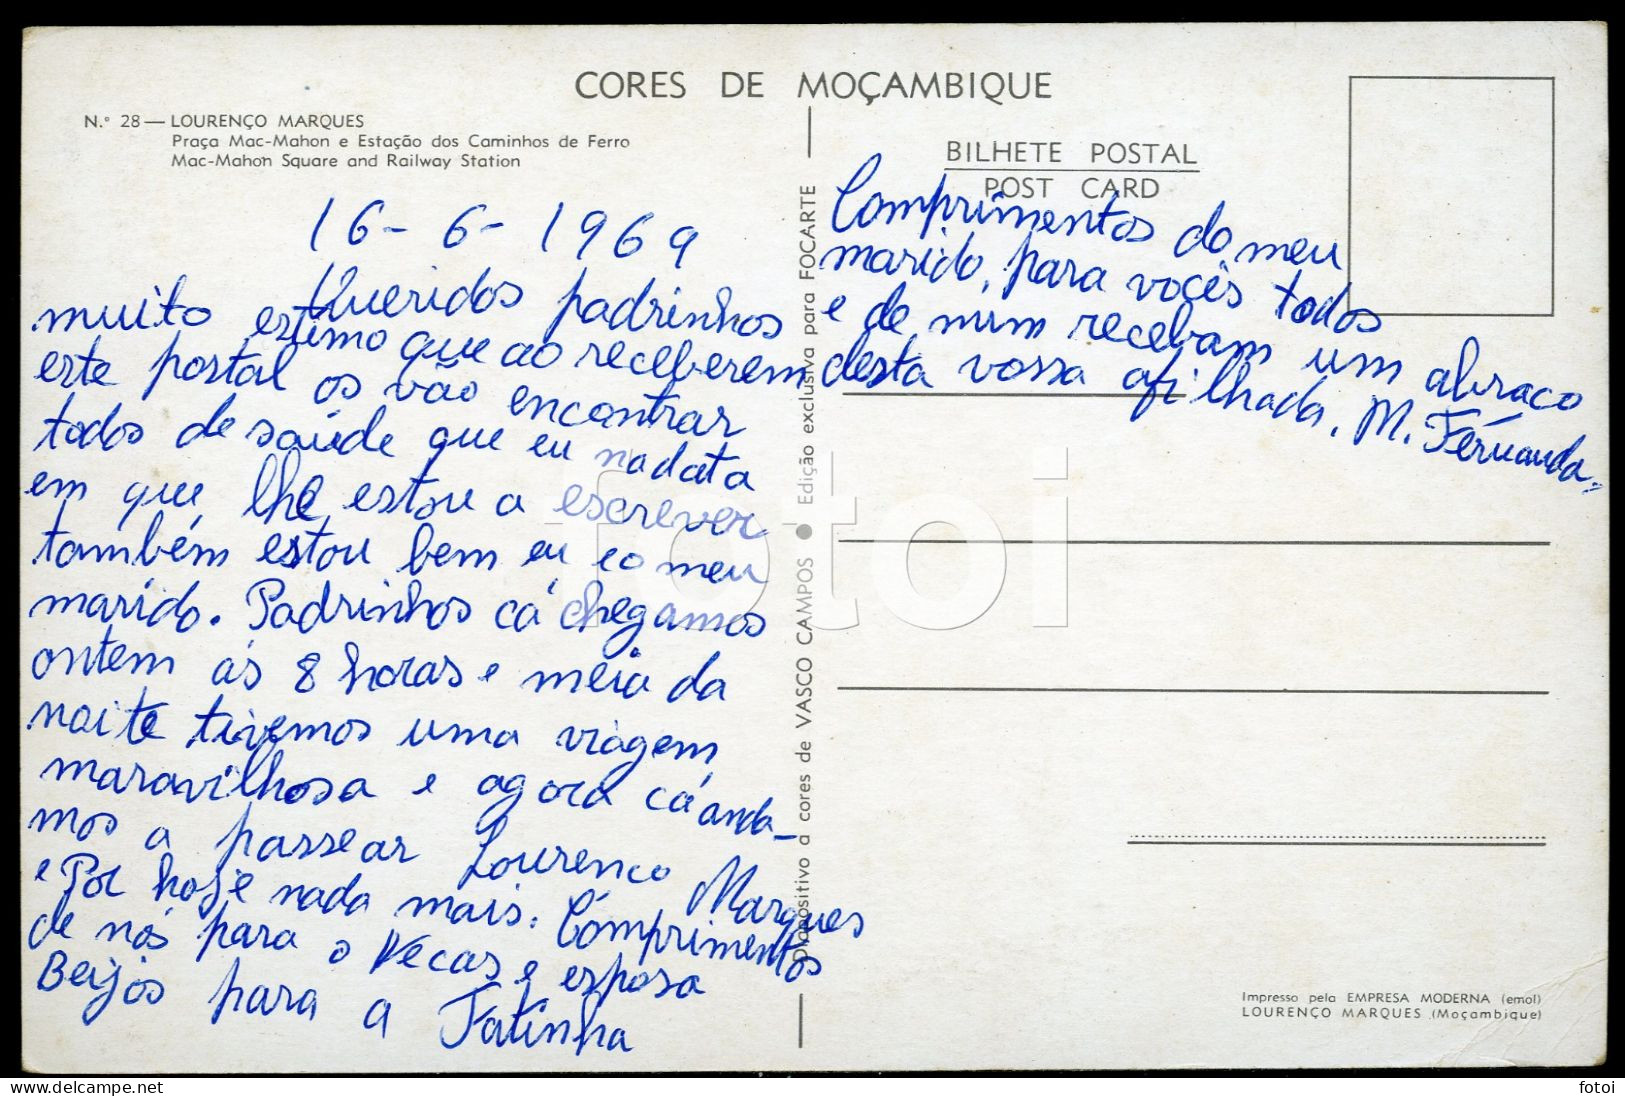 CORES DE MOÇAMBIQUE
N.º 28 — LOURENÇO MARQUES
Praça Mac-Mahon e Estação dos Caminhos de Ferro
Mac-Mahon Square and Railway Station
16-6-1969
Queridos padrinhos
muito estimo que ao receberem
este postal os vão encontrar
todos de saúde que eu na data
em que lhe estou a escrever
também estou bem eu e o meu
marido. Padrinhos cá chegamos
ontem ás 8 horas e meia da
noite tivemos uma viagem
maravilhosa e agora cá anda-
mos a passear Lourenco Marques
e Por hoje nada mais. Comprimentos
de nós para o Vecas e esposa
Beijos para a Fatinha
Diapositivo a cores de VASCO CAMPOS • Edição exclusiva para FOCARTE
BILHETE POSTAL
POST CARD
Comprimentos do meu
marido, para vocês todos
e de mim recebam um abraco
desta vossa afilhada, M. Fernanda
fotoi
Impresso pela EMPRESA MODERNA (emol)
LOURENÇO MARQUES (Moçambique)
https://www.delcampe.net
fotoi